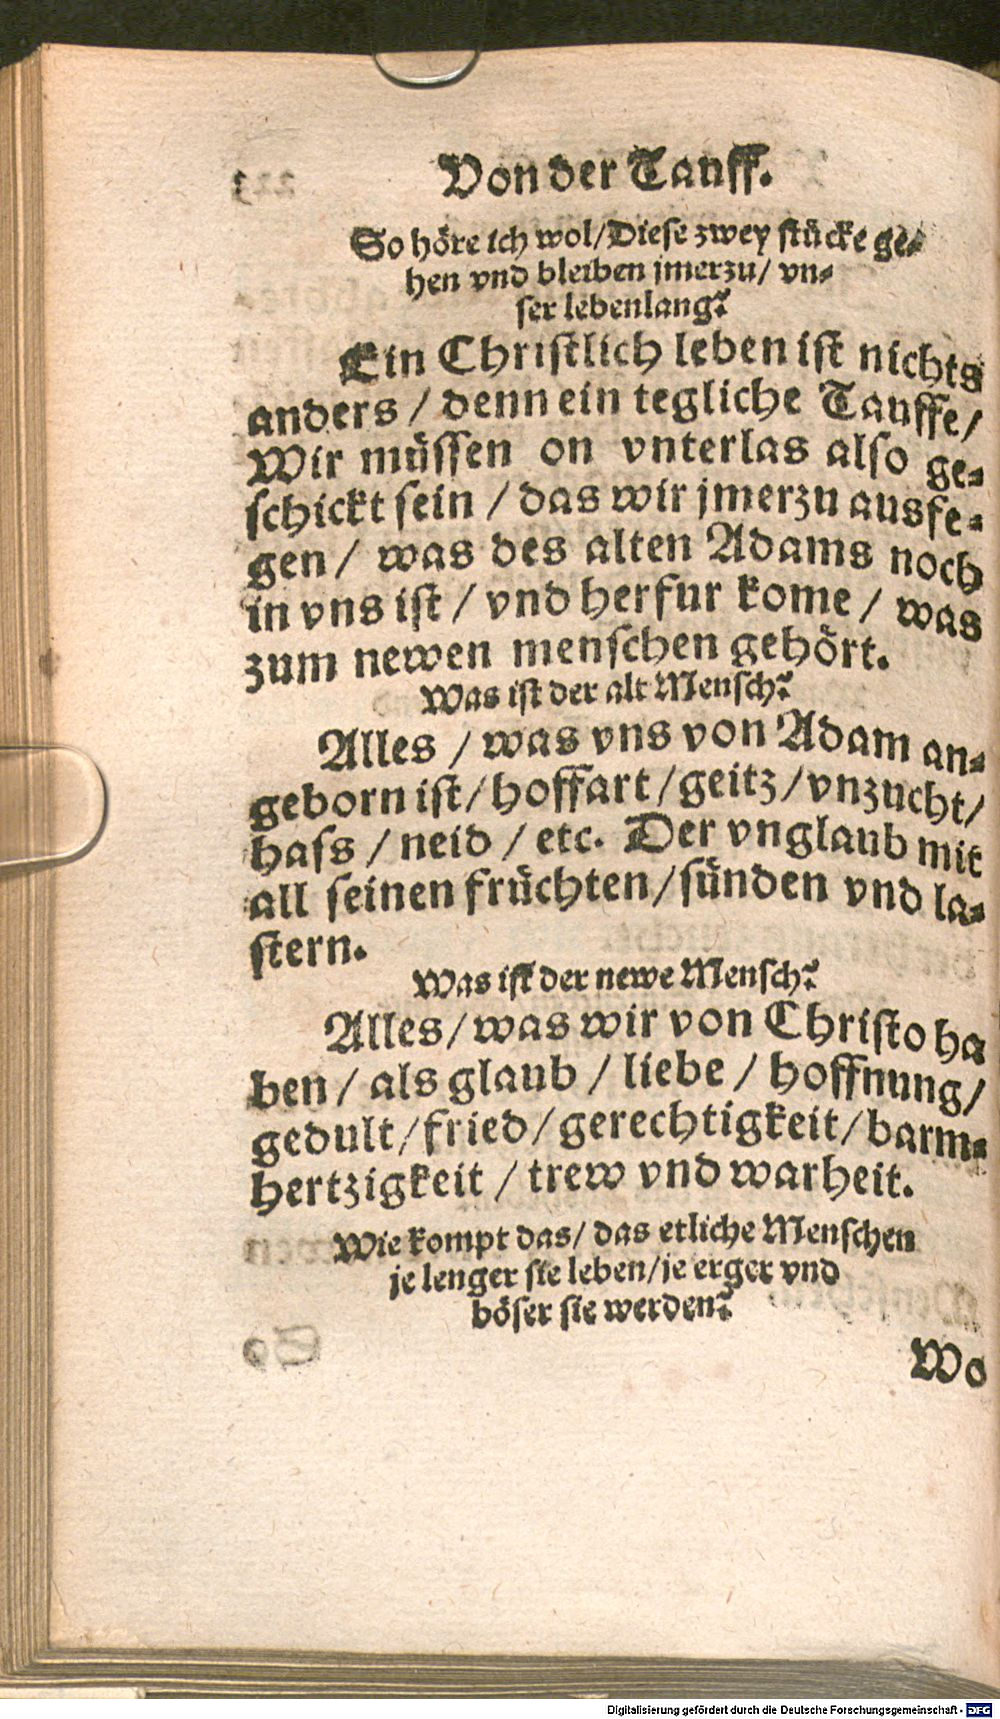 Von der Tauff.
So höre ich wol/Diese zwey stücke ge-
hen vnd bleiben jmerzu/ vn-
ser lebenlang?
Ein Christlich leben ist nichts
anders / denn ein tegliche Tauffe/
Wir müssen on vnterlas also ge-
schickt sein / das wir jmerzu ausfe-
gen / was des alten Adams noch
in vns ist / vnd herfur kome / was
zum newen menschen gehört.
Was ist der alt Mensch?
Alles / was vns von Adam an-
geborn ist/hoffart/geitz/vnzucht/
hass / neid / etc. Der vnglaub mit
all seinen früchten/sünden vnd la-
stern.
Was ist der newe Mensch?
Alles/was wir von Christo ha
ben / als glaub / liebe / hoffnung/
gedult/fried/gerechtigkeit/barm-
hertzigkeit / trew vnd warheit.
Wie kompt das/ das etliche Menschen
je lenger sie leben/je erger vnd
böser sie werden?
Wo
Digitalisierung gefördert durch die Deutsche Forschungsgemeinschaft - DFG